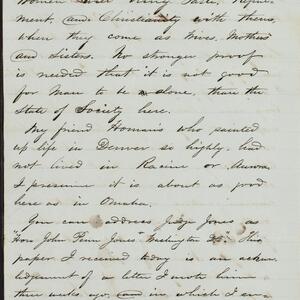 Women ever bring Taste, Refine-
ment, and Christianity with them,
when they come as Wives, Mothers
and Sisters. No stronger proof
is needed that it is not good
for Man to be alone, than the
State of Society here.
My friend Womans who painted
up life in Denver so highly, had
not lived in Racine or Aurora.
I presume it is about as good
here as in Omaha.
You can address Judge Jones as
"Hon John Penn Jones" Washington This
paper I received today is an ackn
ledgement of a letter I wrote him
three weeks ago, and in which I en-